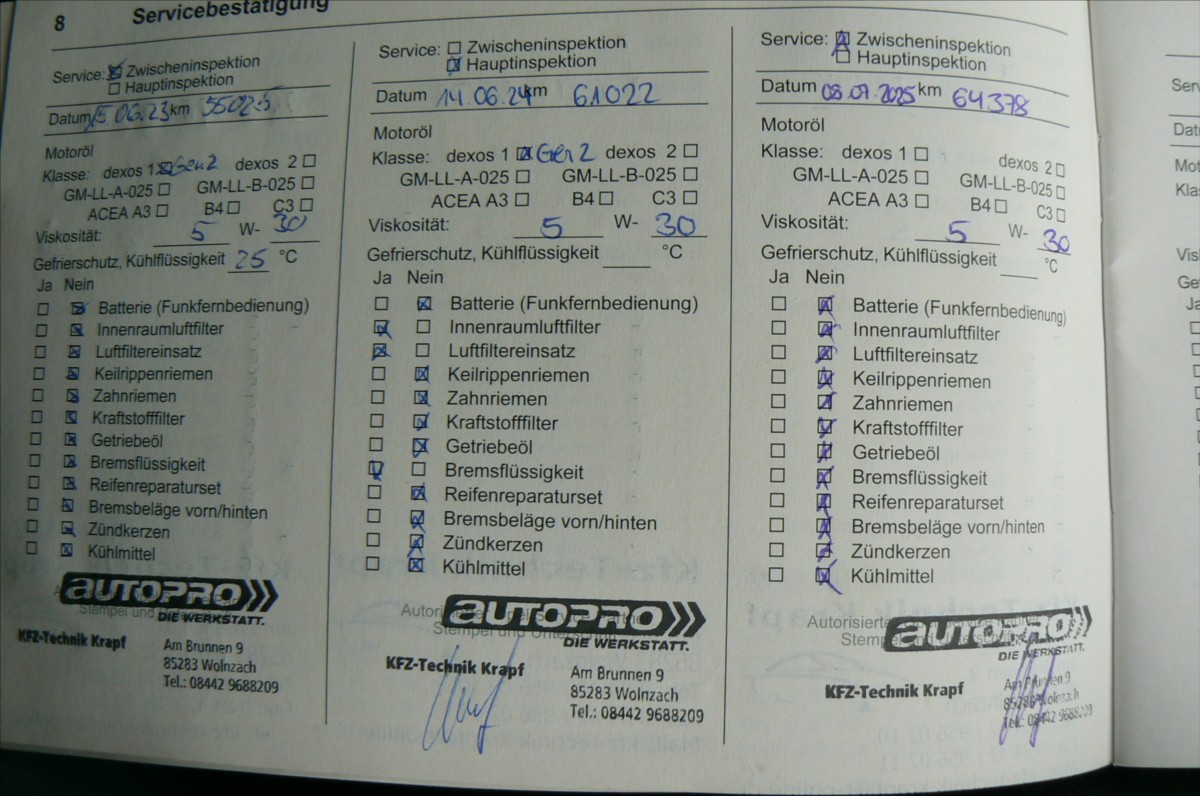 8 Servicebestätigung
Service: ☒ Zwischeninspektion
☐ Hauptinspektion
Datum 15.06.23 km 55025
Motoröl
Klasse: dexos 1 ☒ Gen 2 dexos 2 ☐
GM-LL-A-025 ☐ GM-LL-B-025 ☐
ACEA A3 ☐ B4 ☐ C3 ☐
Viskosität: 5 W- 30
Gefrierschutz, Kühlflüssigkeit 25 °C
Ja Nein
☐ ☒ Batterie (Funkfernbedienung)
☐ ☒ Innenraumluftfilter
☐ ☒ Luftfiltereinsatz
☐ ☒ Keilrippenriemen
☐ ☒ Zahnriemen
☐ ☒ Kraftstofffilter
☐ ☒ Getriebeöl
☐ ☒ Bremsflüssigkeit
☐ ☒ Reifenreparaturset
☐ ☒ Bremsbeläge vorn/hinten
☐ ☒ Zündkerzen
☐ ☒ Kühlmittel
AUTOPRO
DIE WERKSTATT.
Stempel und
KFZ-Technik Krapf
Am Brunnen 9
85283 Wolnzach
Tel.: 08442 9688209
Service: ☐ Zwischeninspektion
☒ Hauptinspektion
Datum 14.06.24 km 61022
Motoröl
Klasse: dexos 1 ☒ Gen 2 dexos 2 ☐
GM-LL-A-025 ☐ GM-LL-B-025 ☐
ACEA A3 ☐ B4 ☐ C3 ☐
Viskosität: 5 W- 30
Gefrierschutz, Kühlflüssigkeit ____ °C
Ja Nein
☐ ☒ Batterie (Funkfernbedienung)
☒ ☐ Innenraumluftfilter
☒ ☐ Luftfiltereinsatz
☐ ☒ Keilrippenriemen
☐ ☒ Zahnriemen
☐ ☒ Kraftstofffilter
☐ ☒ Getriebeöl
☒ ☐ Bremsflüssigkeit
☐ ☒ Reifenreparaturset
☐ ☒ Bremsbeläge vorn/hinten
☐ ☒ Zündkerzen
☐ ☒ Kühlmittel
AUTOPRO
DIE WERKSTATT.
Stempel und
KFZ-Technik Krapf
Am Brunnen 9
85283 Wolnzach
Tel.: 08442 9688209
Service: ☒ Zwischeninspektion
☐ Hauptinspektion
Datum 08.07.2025 km 64378
Motoröl
Klasse: dexos 1 ☐ dexos 2 ☐
GM-LL-A-025 ☐ GM-LL-B-025 ☐
ACEA A3 ☐ B4 ☐ C3 ☐
Viskosität: 5 W- 30
Gefrierschutz, Kühlflüssigkeit ____ °C
Ja Nein
☐ ☒ Batterie (Funkfernbedienung)
☐ ☒ Innenraumluftfilter
☐ ☒ Luftfiltereinsatz
☐ ☒ Keilrippenriemen
☐ ☒ Zahnriemen
☐ ☒ Kraftstofffilter
☐ ☒ Getriebeöl
☐ ☒ Bremsflüssigkeit
☐ ☒ Reifenreparaturset
☐ ☒ Bremsbeläge vorn/hinten
☐ ☒ Zündkerzen
☐ ☒ Kühlmittel
Autorisierte
AUTOPRO
DIE WERKSTATT.
KFZ-Technik Krapf
Am Brunnen 9
85283 Wolnzach
Tel.: 08442 9688209